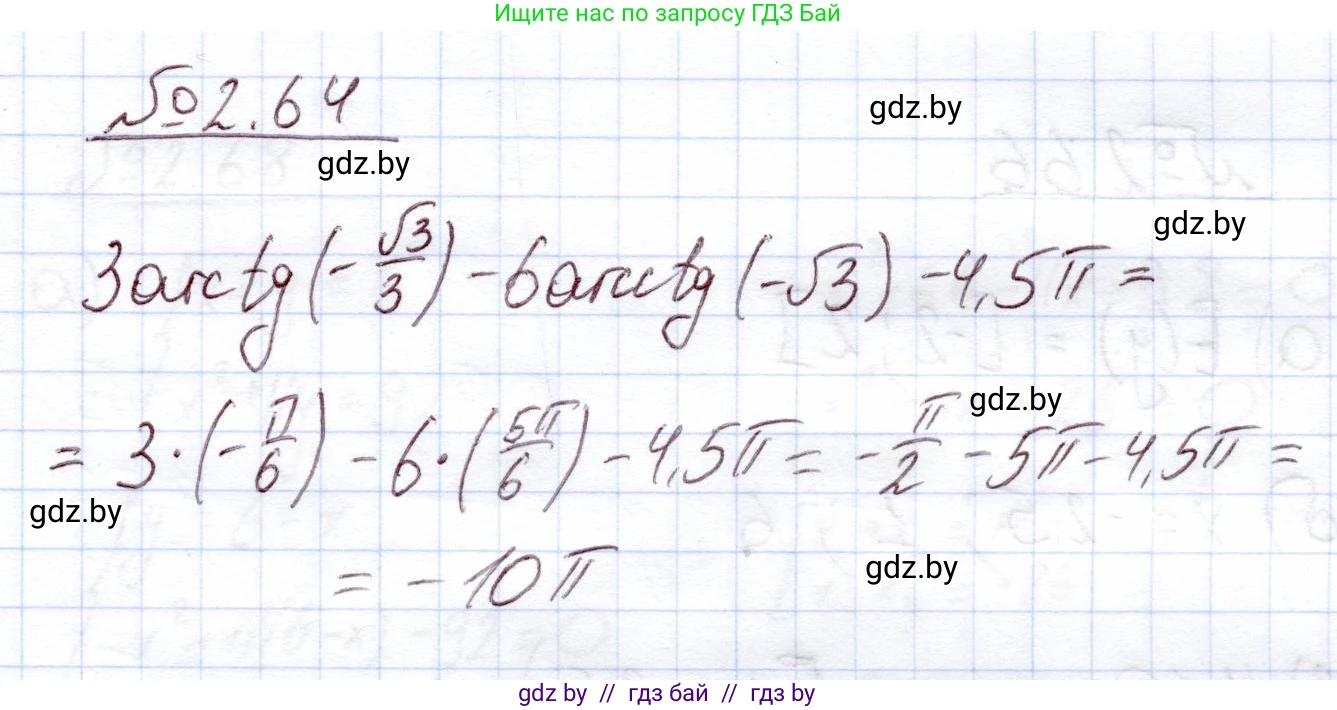 Ищите нас по запросу ГДЗ Бай
№2.64
gdz.by
gdz.by
gdz.by
3arctg(-√3/3) - 6arcctg(-√3) - 4,5π =
gdz.by
= 3·(-π/6) - 6·(5π/6) - 4,5π = -π/2 - 5π - 4,5π =
gdz.by
= -10π
gdz.by
gdz by // гдз бай // гдз by